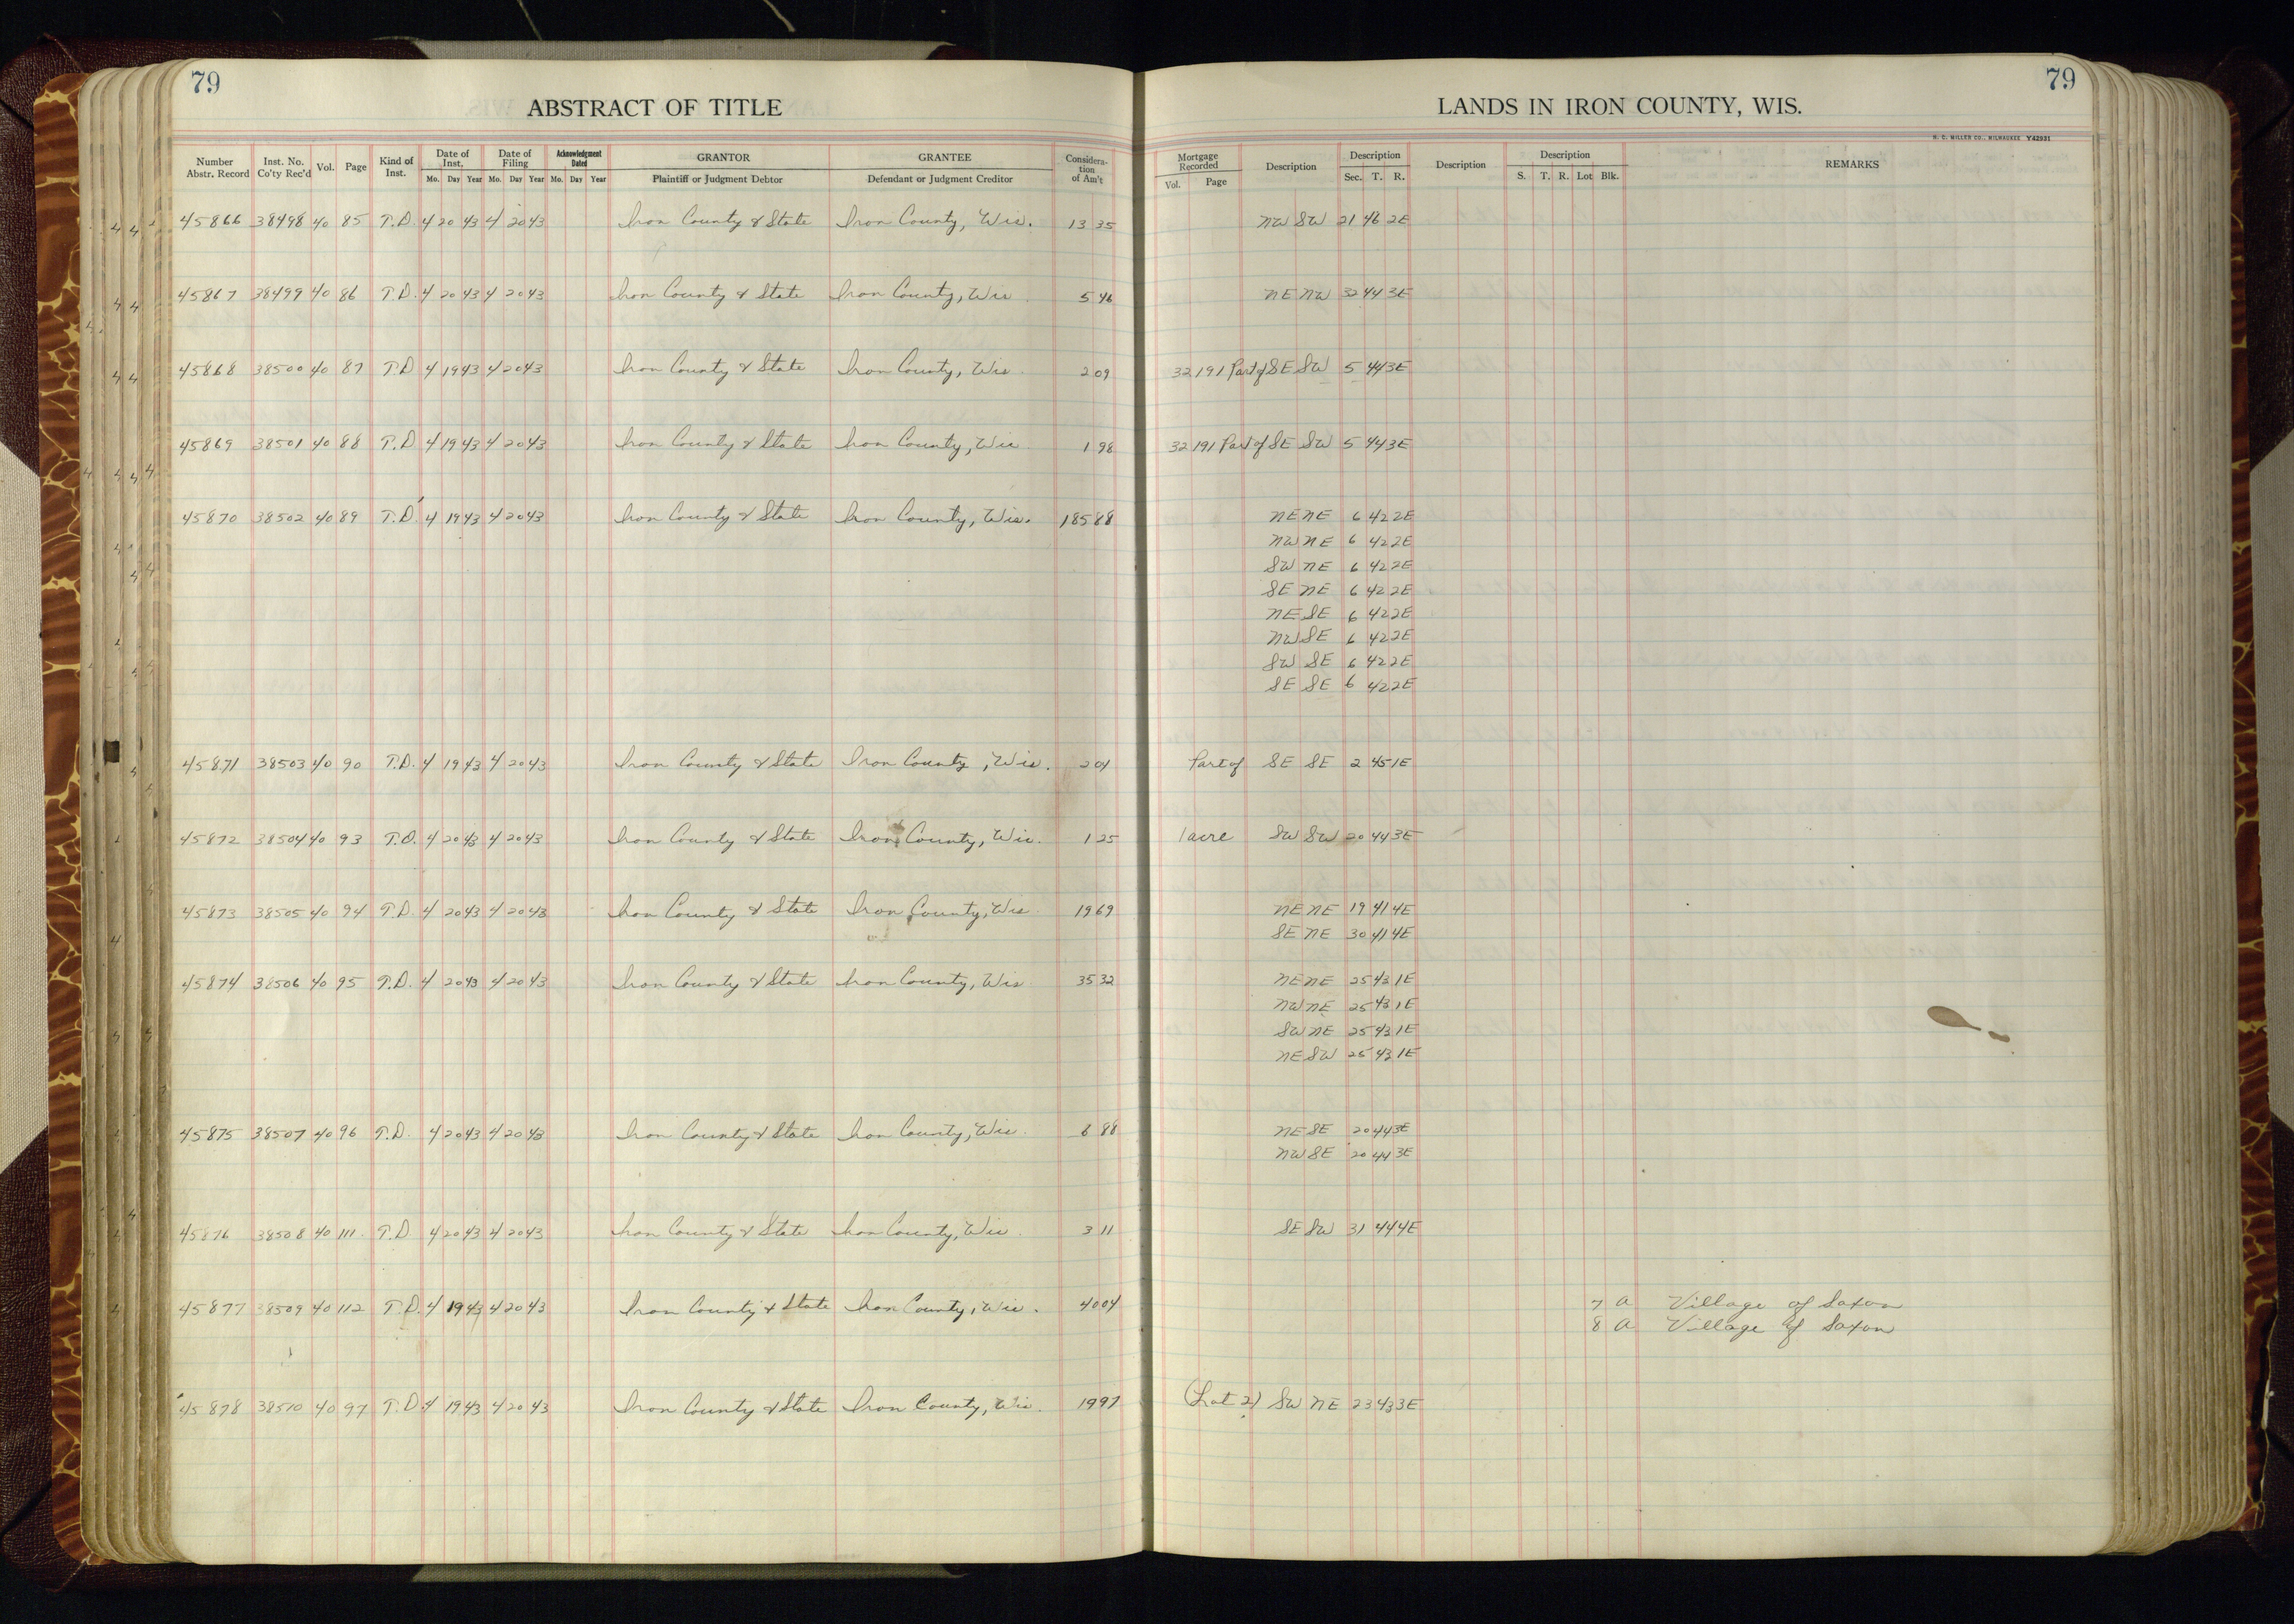 79
79
ABSTRACT OF TITLE
LANDS IN IRON COUNTY, WIS.
H. C. MILLER CO., MILWAUKEE Y42931
Number Abstr. Record
Inst. No. Co'ty Rec'd
Vol.
Page
Kind of Inst.
Date of Inst. Mo. Day Year
Date of Filing Mo. Day Year
Acknowledgment Dated Mo. Day Year
GRANTOR Plaintiff or Judgment Debtor
GRANTEE Defendant or Judgment Creditor
Consideration of Am't
Mortgage Recorded Vol. Page
Description
Description Sec. T. R.
Description
Description S. T. R. Lot Blk.
REMARKS
45866 38498 40 85 T.D. 4 20 43 4 20 43 Iron County & State Iron County, Wis. 13 35 NW SW 21 46 2E
45867 38499 40 86 T.D. 4 20 43 4 20 43 Iron County & State Iron County, Wis 5 46 NE NW 32 44 3E
45868 38500 40 87 T.D 4 19 43 4 20 43 Iron County & State Iron County, Wis 2 09 32 191 Part of SE SW 5 44 3E
45869 38501 40 88 T.D 4 19 43 4 20 43 Iron County & State Iron County, Wis 1 98 32 191 Part of SE SW 5 44 3E
45870 38502 40 89 T.D. 4 19 43 4 20 43 Iron County & State Iron County, Wis. 185 88 NE NE 6 42 2E
NW NE 6 42 2E
SW NE 6 42 2E
SE NE 6 42 2E
NE SE 6 42 2E
NW SE 6 42 2E
SW SE 6 42 2E
SE SE 6 42 2E
45871 38503 40 90 T.D. 4 19 43 4 20 43 Iron County & State Iron County, Wis. 2 04 Part of SE SE 2 45 1E
45872 38504 40 93 T.D. 4 20 43 4 20 43 Iron County & State Iron County, Wis. 1 25 1 acre SW SW 20 44 3E
45873 38505 40 94 T.D. 4 20 43 4 20 43 Iron County & State Iron County, Wis 19 69 NE NE 19 41 4E
SE NE 30 41 4E
45874 38506 40 95 T.D. 4 20 43 4 20 43 Iron County & State Iron County, Wis 35 32 NE NE 25 43 1E
NW NE 25 43 1E
SW NE 25 43 1E
NE SW 25 43 1E
45875 38507 40 96 T.D. 4 20 43 4 20 43 Iron County & State Iron County, Wis. 6 88 NE SE 20 44 3E
NW SE 20 44 3E
45876 38508 40 111 T.D. 4 20 43 4 20 43 Iron County & State Iron County, Wis 3 11 SE SW 31 44 4E
45877 38509 40 112 T.D. 4 19 43 4 20 43 Iron County & State Iron County, Wis. 40 04 7 A Village of Saxon
8 A Village of Saxon
45878 38510 40 97 T.D. 4 19 43 4 20 43 Iron County & State Iron County, Wis. 19 97 (Lot 2) SW NE 23 43 3E